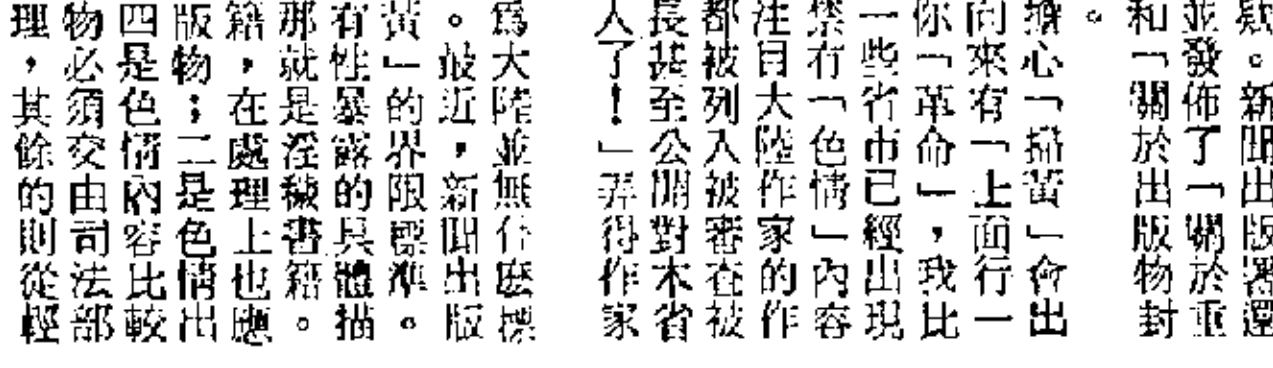 疑。新聞出版署還
並發佈了「關於重
和「關於出版物封
。
擔心「掃黃」會出
向來有「上面行一
你「革命」,我比
一些省市已經出現
禁有「色情」內容
注目大陸作家的作
都被列入被審查被
長甚至公開對本省
人了!」弄得作家
為大陸並無什麼標
。最近,新聞出版
黃」的界限標準。
有性暴露的具體描
那就是淫穢書籍。
籍,在處理上也應
版物;二是色情出
四是色情內容比較
物必須交由司法部
理,其餘的則從輕